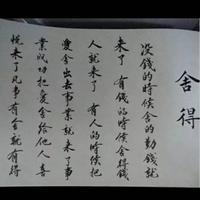 舍得
没錢的時候舍的勤錢就
来了有錢的時候舍得錢
人就来了有人的時候把
愛舍出去事業就来了事
業成功把愛舍给他人喜
悦来了凡事有舍就有得